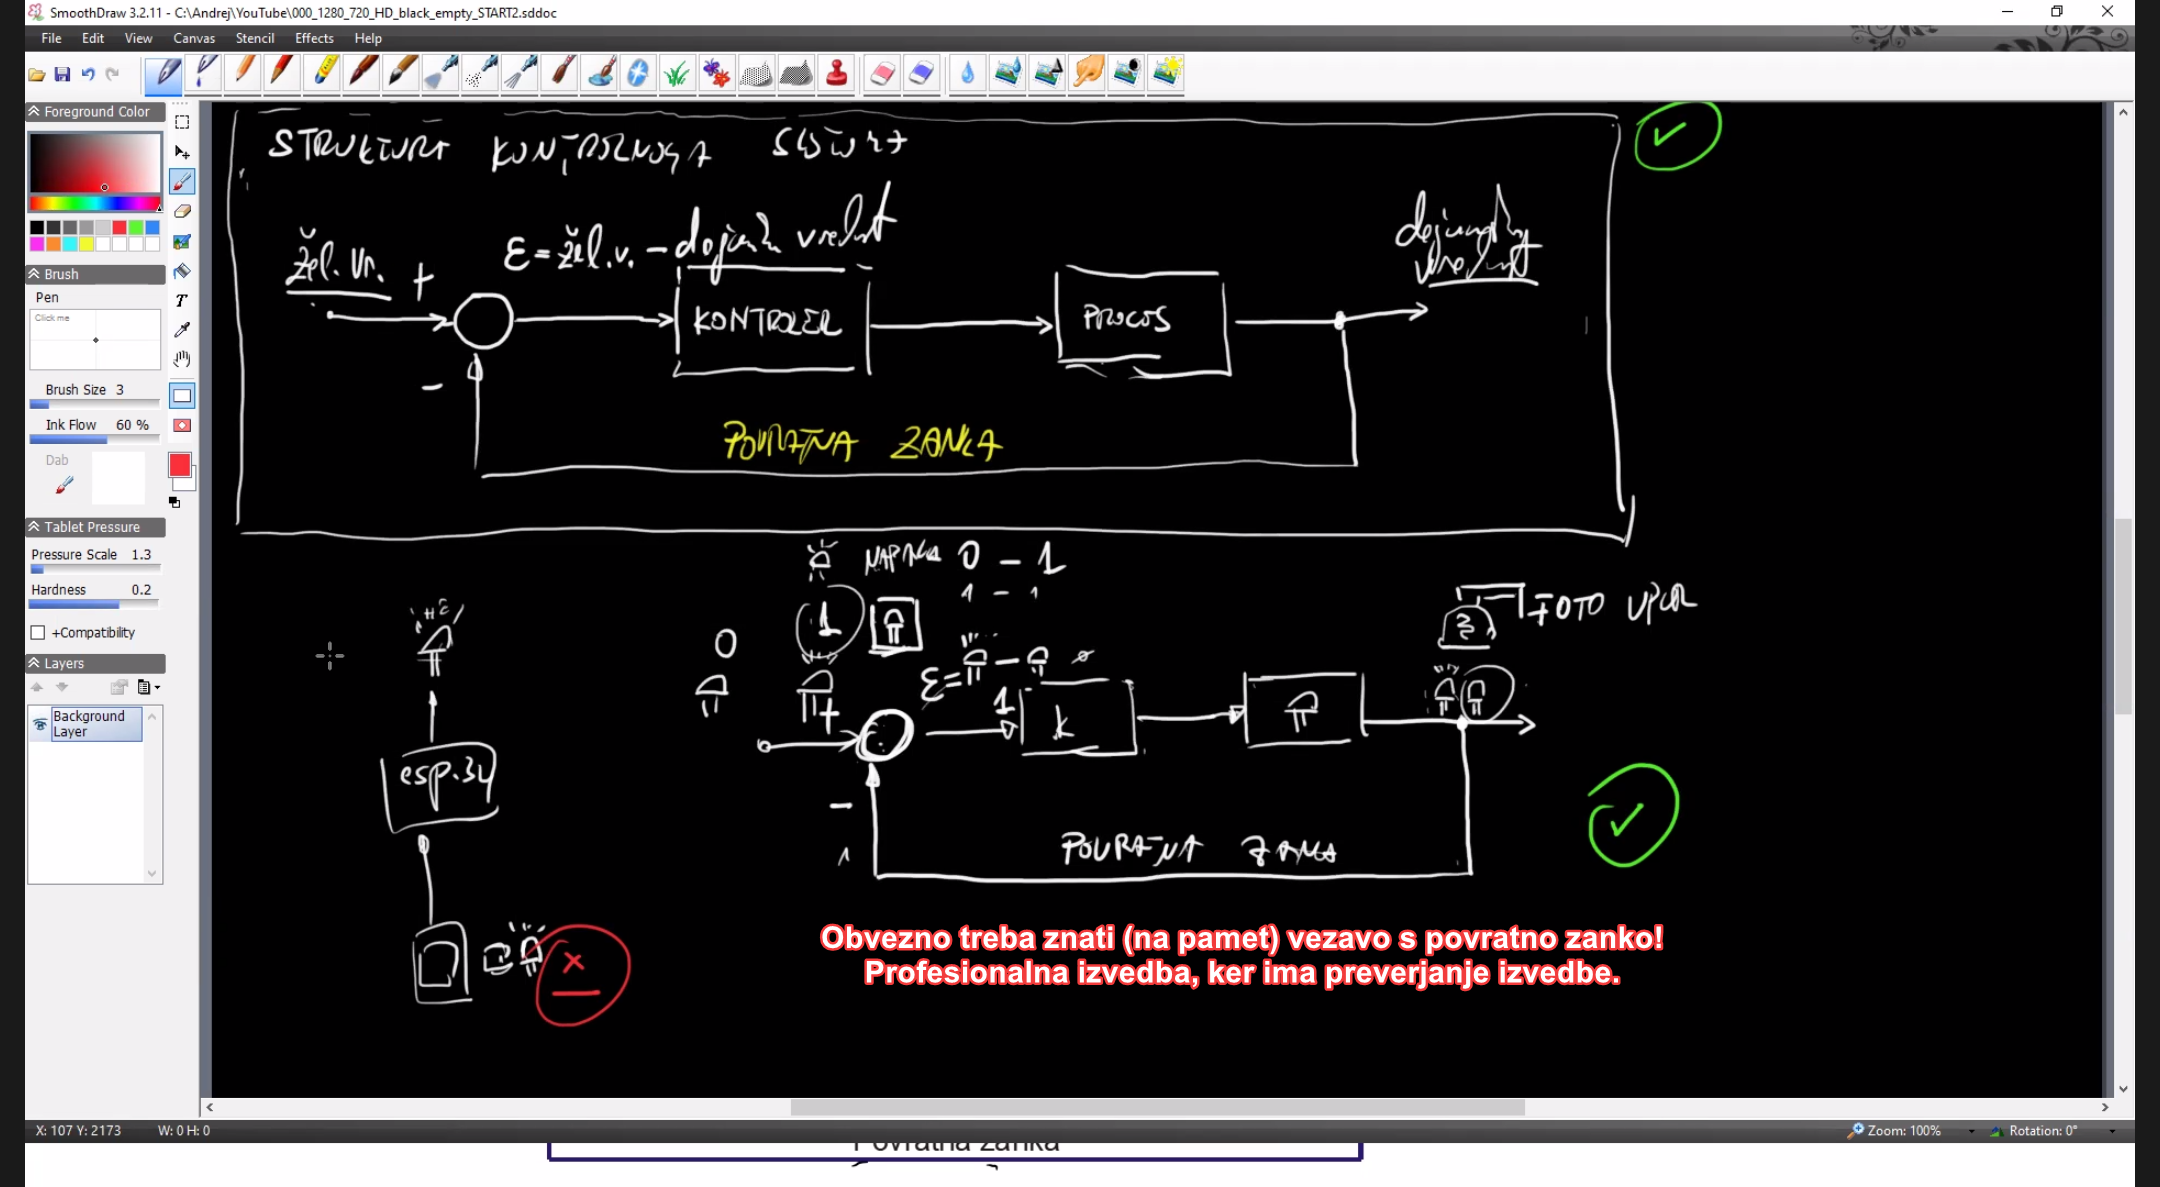 SmoothDraw 3.2.11 - C:\Andrej\YouTube\000_1280_720_HD_black_empty_START2.sddoc
File Edit View Canvas Stencil Effects Help
Foreground Color
Brush
Pen
Click me
Brush Size 3
Ink Flow 60 %
Dab
Tablet Pressure
Pressure Scale 1.3
Hardness 0.2
+Compatibility
Layers
Background Layer
STRUKTURA KONTROLNEGA
žel. vr. +
ε = žel. v. -
KONTROLER
PROCES
-
POVRATNA ZANKA
NAPAKA 0 - 1
1 - 1
FOTO UPOR
0
1
ε =
-
+
1
k
esp.32
-
1
POVRATNA ZANKA
x
Obvezno treba znati (na pamet) vezavo s povratno zanko!
Profesionalna izvedba, ker ima preverjanje izvedbe.
X: 107 Y: 2173 W: 0 H: 0
Zoom: 100% Rotation: 0°
Povratna zanka